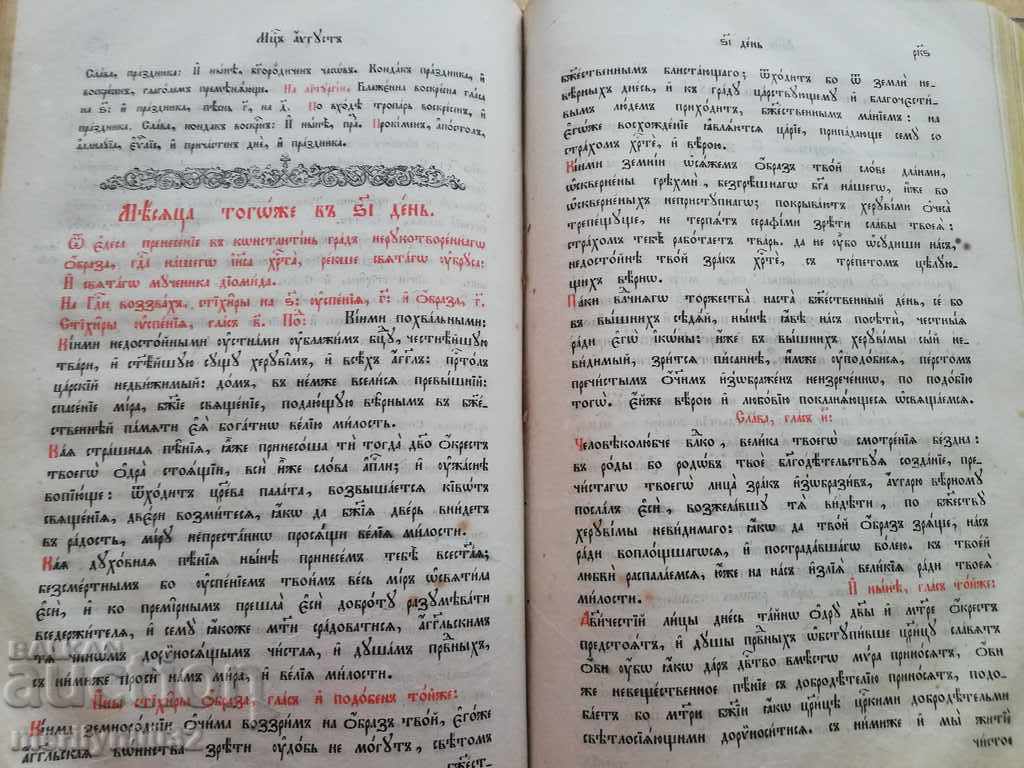 Мц҃ъ аѵгустъ
Слава, праздника: И нынѣ, бг҃ородиченъ часѡвъ. Кондакъ праздника, и
воскресенъ, глаголемъ премѣняюще. На літургіи Блаженна воскресна гласа
на ѕ҃: и праздника, пѣснь г҃, на д҃. По входѣ тропарь воскресенъ, и
праздника. Слава, кондакъ воскр҃нъ: И нынѣ, пра. Прокіменъ, апостолъ,
аллилуіа, еѵ҃ліе, и причастенъ дне, и праздника.
Мѣсяца тогѡже въ ѕ҃і день.
Ѿ едеса пренесеніе въ кѡнстантінь градъ нерукотвореннагѡ
ѡбраза, гд҃а нашегѡ іи҃са хр҃та, рекше святагѡ убруса:
И святагѡ мученика діомида.
На Гд҃и воззвахъ, стіхиры на ѕ҃: успенія, г҃: и ѡбраза, г҃.
Стіхиры успенія, гласъ в҃. Под: Кіими похвальными:
Кіими недостойными устнами ублажимъ бц҃у, честнѣйшую
твари, и ст҃ѣйшую сущу херувімъ, и всѣхъ аг҃глъ: прⷭ҇толъ
царскій недвижимый: домъ, въ немже вселися превышній:
спасеніе міра, бж҃іе священіе, подающую вѣрнымъ въ бж҃е-
ственнѣй памяти ея богатнѡ велію милость.
Кая страшная пѣнія, яже принесоша ти тогда дв҃о ѡкрестъ
твоегѡ ѻдра стоящіи, вси иже слова ап҃ли; и ужаснѣ
вопіюще: ѿходитъ цр҃ева палата, возвышается ківѡтъ
священія, двери возмитеся, якѡ да бж҃ія дверь внидетъ
въ радость, міру непрестаннѡ просящи велія милости.
Кая духовная пѣнія нынѣ принесемъ тебѣ всест҃ая;
безсмертнымъ бо успеніемъ твоимъ весь міръ ѡсвятила
еси, и ко премірнымъ прешла еси доброту разумѣвати
вседержителя, и сему якоже мт҃и срадоватися, аг҃гльскимъ
тя чинѡмъ дорѵносящымъ чистая, и душамъ прв҃ныхъ,
съ нимиже проси намъ міра, и велія милости.
Ины стіхиры ѡбраза, гласъ и подобенъ тойже:
Кіима земнородніи очима воззримъ на ѡбразъ твой, егѡже
аг҃гльская вѡинства зрѣти удобь не могутъ, свѣтомъ
бж҃ест-
ѕ҃і день
рк҃ѕ
бж҃ественнымъ блистающаго; ѿходитъ бо ѿ земли не-
вѣрныхъ днесь, и къ граду царствующему и благочести-
вымъ людемъ приходитъ, бж҃ественнымъ маніемъ: на
егѡже восхожденіе являются царіе, припадающе сему со
страхомъ хрⷭ҇те, и вѣрою.
Кіими земніи ѡсяжемъ ѡбразъ твой слове дланми,
ѡсквернены грѣхми, безгрѣшнагѡ бг҃а нашегѡ, иже во
ѡскверненыхъ неприступнагѡ; покрываютъ херувіми очеса
трепещуще, не терпятъ серафіми зрѣти славы твоея:
страхомъ тебѣ работаетъ тварь. да не убо ѡсудиши насъ,
недостойнѣ твой зракъ хрⷭ҇те, съ трепетомъ цѣлую-
щихъ вѣрнѡ.
Паки влⷣчнягѡ торжества наста бж҃ественный день, се бо
въ вышнихъ сѣдяй, нынѣ явѣ насъ посѣти, честныя
ради егѡ іконы: иже въ вышнихъ херувімы сый не-
видимый, зрится писаніемъ, имже уподобися, перстомъ
пречистымъ ѻч҃имъ изображенъ неизреченнѡ, по подобію
тогѡ. Ейже вѣрою и любовію покланяющеся ѡсвящаемся.
Слава, гласъ и҃:
Человѣколюбче влⷣко, велика твоегѡ смотренія бездна:
въ роды бо родѡвъ твое благодѣтельствуя созданіе, пре-
чистагѡ твоегѡ лица зракъ изѡбразивъ, аѵгарю вѣрному
послалъ еси, возжелавшу тя видѣти, по бж҃еству
херувімы невидимаго: якѡ да твой ѡбразъ зряще, насъ
ради воплощшагѡся, и пострадавшагѡ волею. къ твоей
любви распалаемся, юже на насъ изліялъ великія ради твоея
милости.
И нынѣ, гласъ тойже:
Дв҃ическіи лицы днесь тайнѡ ѻдру дв҃ы и мт҃ре ѡкрестъ
предстоятъ, и душы прв҃ныхъ ѡбступивше цр҃ицу славятъ
Ѻви убѡ якѡ даръ дв҃ство вмѣстѡ мѵра приносятъ, ѻви
же невещественное пѣніе съ добродѣтелію приносятъ, подо-
баетъ бо мт҃ри бж҃іи якѡ цр҃ицѣ цр҃кими добродѣтельми
свѣтлосіяющими дорѵноситися. съ нимиже и мы житіе
чистое